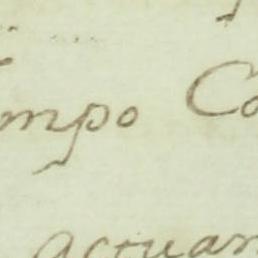 mpo Co
actuan